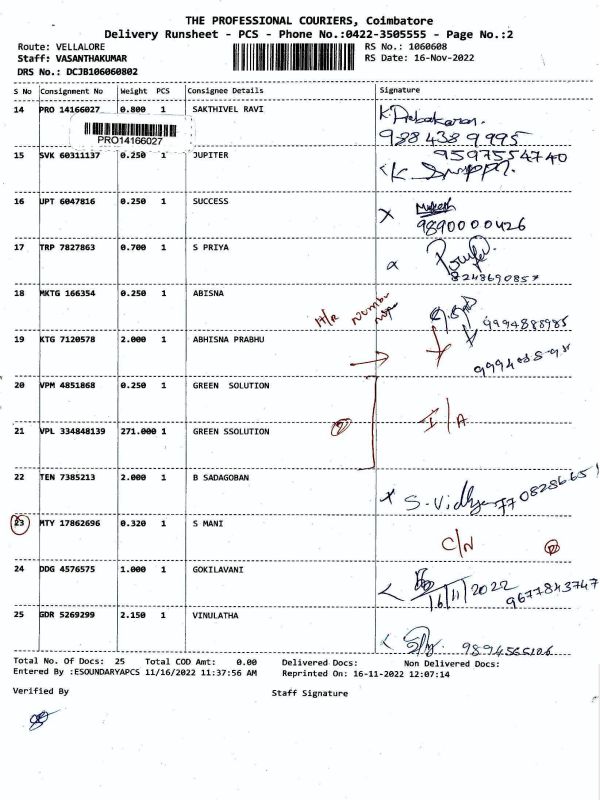 THE PROFESSIONAL COURIERS, Coimbatore
Delivery Runsheet - PCS - Phone No.:0422-3505555 - Page No.:2
Route: VELLALORE
RS No.: 1060608
Staff: VASANTHAKUMAR
RS Date: 16-Nov-2022
DRS No.: DCJB106060802
S No Consignment No Weight PCS Consignee Details Signature
14 PRO 14166027 0.800 1 SAKTHIVEL RAVI
PRO14166027
988438 9995
15 SVK 60311137 0.250 1 JUPITER 9597554740
16 UPT 6047816 0.250 1 SUCCESS
9890000426
17 TRP 7827863 0.700 1 S PRIYA
18 MKTG 166354 0.250 1 ABISNA
9994888985
19 KTG 7120578 2.000 1 ABHISNA PRABHU
20 VPM 4851868 0.250 1 GREEN SOLUTION
21 VPL 334848139 271.000 1 GREEN SSOLUTION I/A
22 TEN 7385213 2.000 1 B SADAGOBAN
S. Vidhya 7708286651
23 MTY 17862696 0.320 1 S MANI
C/N
24 DDG 4576575 1.000 1 GOKILAVANI
16/11/2022 9677843747
25 GDR 5269299 2.150 1 VINULATHA
Total No. Of Docs: 25 Total COD Amt: 0.00 Delivered Docs: Non Delivered Docs:
Entered By :ESOUNDARYAPCS 11/16/2022 11:37:56 AM Reprinted On: 16-11-2022 12:07:14
Verified By Staff Signature